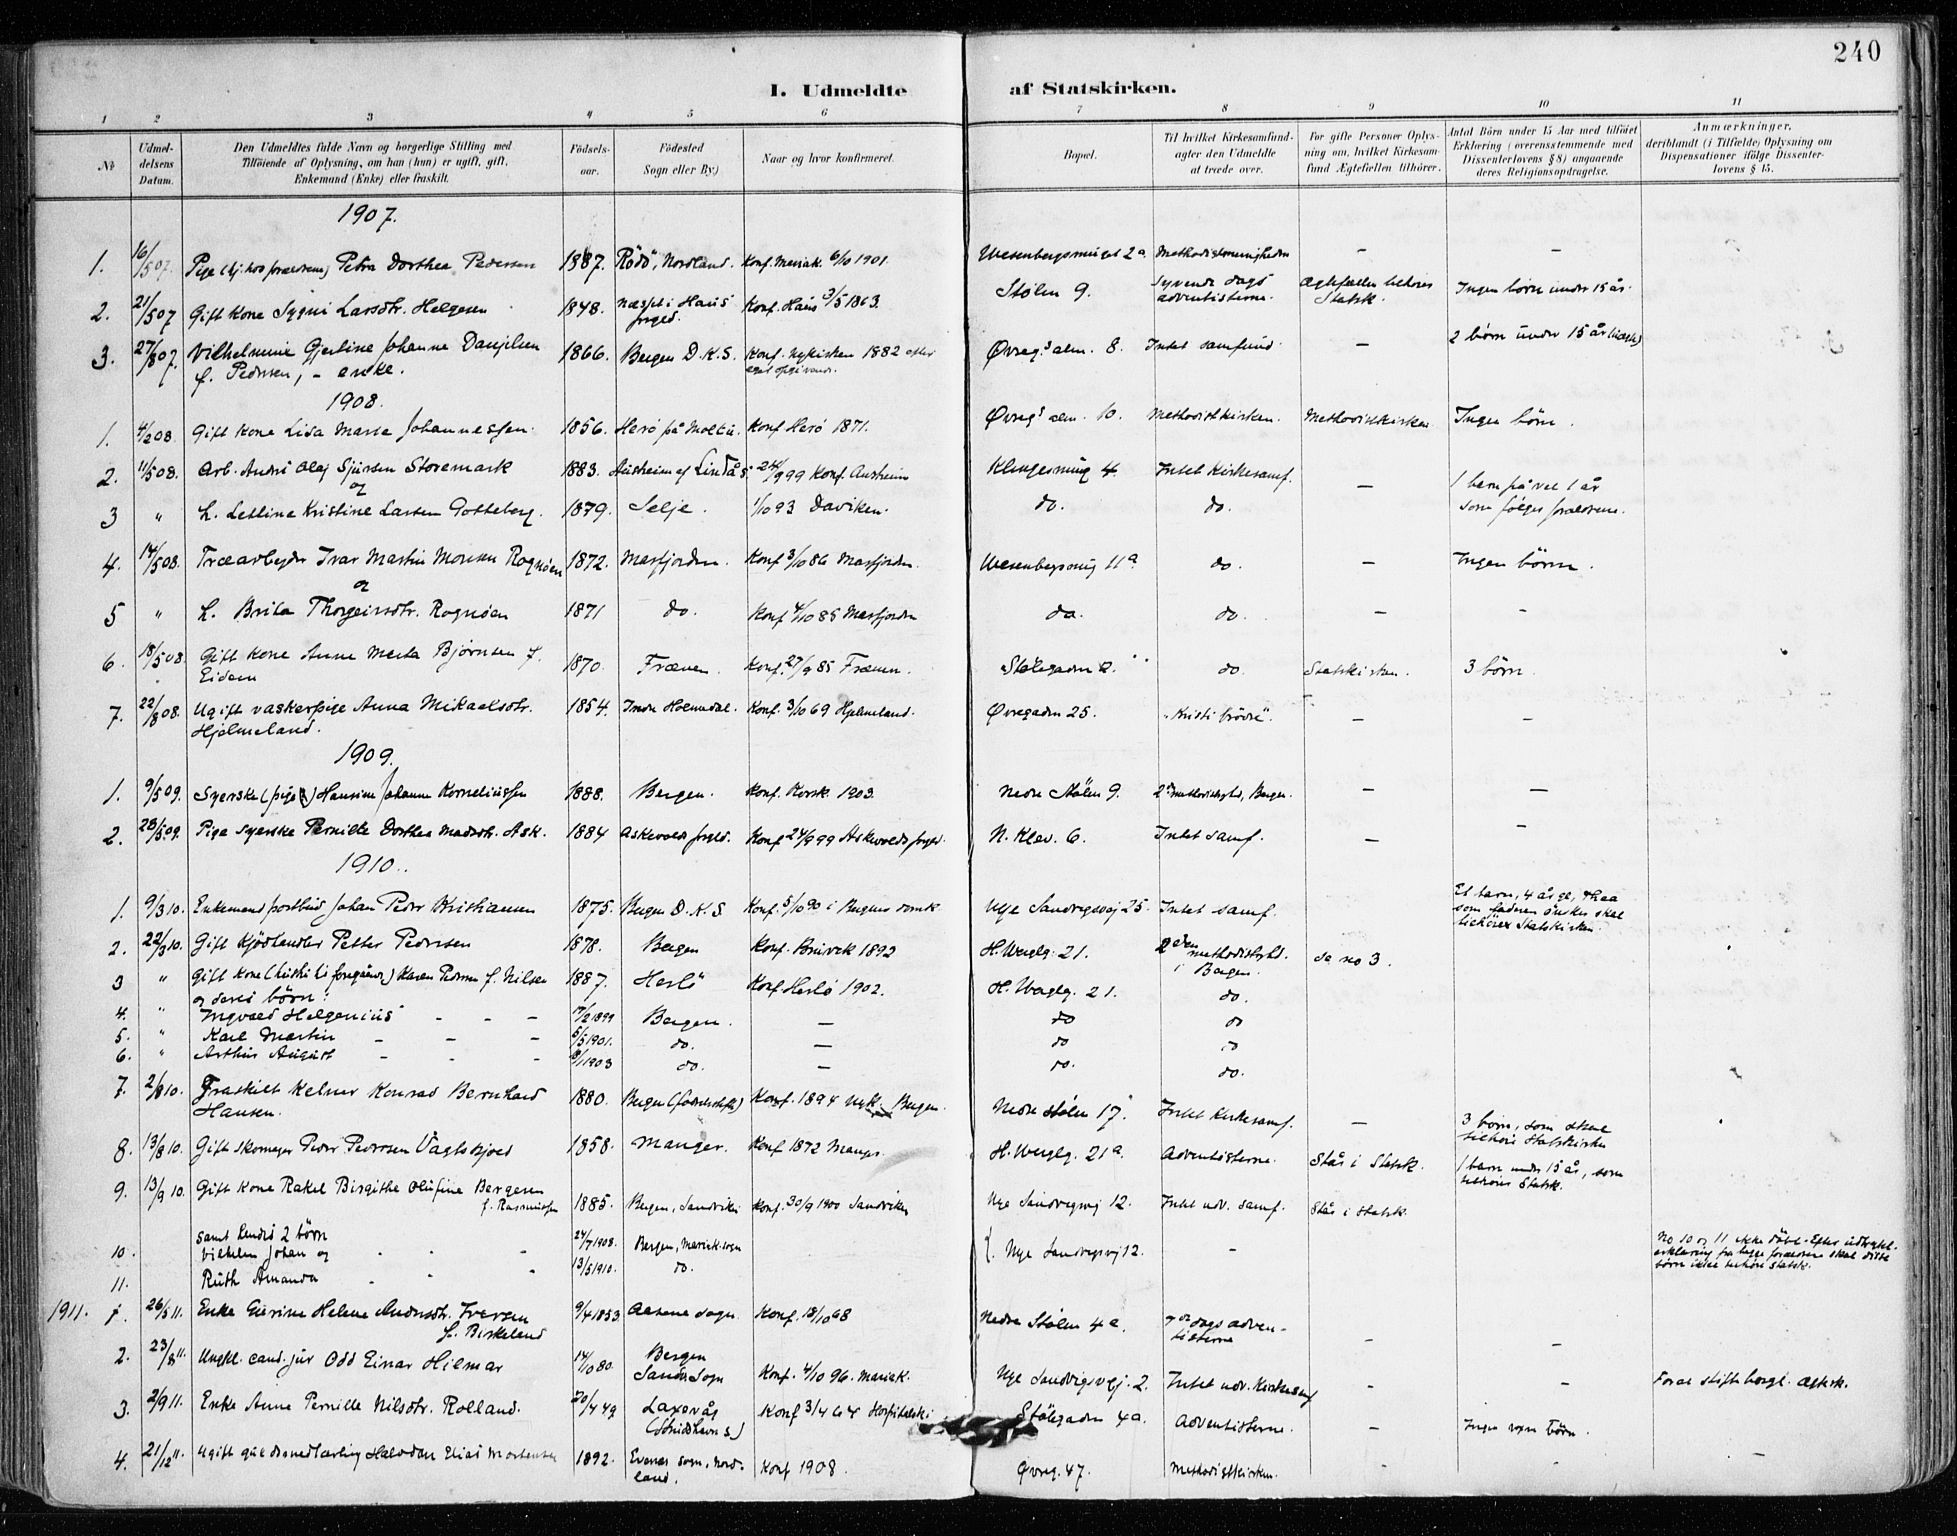 240
I. Udmeldte af Statskirken.
1 2 3 4 5 6 7 8 9 10 11
№
Udmel-
delsens
Datum.
Den Udmeldtes fulde Navn og borgerlige Stilling med
Tilføiende af Oplysning, om han (hun) er ugift, gift,
Enkemand (Enke) eller fraskilt.
Fødsels-
aar.
Fødested
Sogn eller By.)
Naar og hvor konfirmeret.
Bopæl.
Til hvilket Kirkesamfund-
agter den Udmeldte
at træde over.
For gifte Personer Oplys-
ning om, hvilket Kirkesam-
fund Ægtefællen tilhører.
Antal Børn under 15 Aar med tilføiet
Erklæring (overensstemmende med
Dissenterlovens § 8) angaaende
deres Religionsopdragelse.
Anmærkninger,
deriblandt (i Tilfælde) Oplysning om
Dispensationer ifølge Dissenter-
lovens § 15.
1907.
1. 16/5 07. Pige Petra Dorthea Pedersen 1887. Rödö, Nordland. Konf. Mariak. 6/10 1901. Wesenbergsmuget 2a Methodistmenigheden – –
2. 21/5 07 Gift kone Sygni Larsdtr. Helgesen 1848. Næsset i Haus prgld. Konf. Haus 3/5 1863. Stølen 9. Syvende dags adventisterne. Ægtefællen tilhører Statsk. Ingen børn under 15 år.
3. 27/8 07. Vilhelmine Gjertine Johanne Danjelsen 1866. Bergen D.K.S. Konf. Nykirken 1882 efter Øvregs alm. 8. Intet samfund. – 2 børn under 15 år
f. Pedersen, – enke. eget opgivende.
1908.
1. 4/2 08. Gift kone Lisa Marie Johannessen. 1856. Herö på Konf Herö 1871. Øvregs alm. 10. Methodistkirken. Methodistkirken Ingen børn.
2. 11/5 08. Arb. Andri Olaj Sjursen Storemark 1883. Austrheim af Lindås 24/9 99 Konf. Austrheim Klingesmug 4. Intet Kirkesamf. – 1 barn på vel 1 år
og
3 " h. Lettine Kristine Larsen Totteberg. 1879. Selje. 1/10 93 Daviken. do. do. som følger forældrene.
4. 14/5 08. Træarbeyder Ivar Martin Monsen Rognöen 1872. Masfjorden. Konf 3/10 86 Masfjorden. Wesenbergsmug 11a do. – Ingen börn.
og
5 " h. Brita Thorgeirsdtr. Rognöen 1871 do. Konf 4/10 85 Masfjorden do. do. – –
6. 18/5 08. Gift kone Anne Marta Björnsen f. 1870. Frænen. Konf. 27/9 85 Frænen. Stølegaden 2. do Statskirken. 3 börn.
Eidem
7. 22/8 08. Ugift vaskerpige Anna Mikaelsdtr. 1854. Indre Holmedal. Konf. 3/10 69 Hjelmeland. Øvregaden 25. "Kristi brödre". – –
Hjelmeland.
1909.
1. 9/5 09. Syerske (pige) Hansine Johanne Korneliussen 1888. Bergen. Konf. Korsk. 1903. Nedre Stølen 9. 2den methodistmgh, Bergen. – –
2. 28/5 09. Pige Syerske Pernille Dorthea Madsdtr. Ask. 1884 Askevolds prgld. Konf 24/9 99 Askevolds prgld. N. Klev. 6. Intet samf. – –
1910.
1. 9/3 10. Enkemand postbud Johan Peder Kristiansen 1875. Bergen D.K.S. Konf. 5/10 90 i Bergens domk. Nye Sandvigsvej 25. Intet samf. Et barn, 4 år gl., Thea
som faderen ønsker skal
tilhöre Statskirken.
2. 22/3 10. Gift Kjödhandler Petter Pedersen 1878. Bergen Konf. Bruvik 1892 H. Wergelg. 21. 2den methodistmgh. i Bergen. se no 3.
3 " Gift kone (hustru til foregående) Karen Pedersen f. Nilsen 1887. Herlö Konf. Herlö 1902. H. Wergelg. 21. do.
og deres börn:
4. " Ingvald Helgenius – – – 17/2 1899 Bergen. – do do
5. " Karl Martin – – – 5/5 1901. do. – do do
6. " Arthur August – – – 8/1 1903 do. – do. do.
7. 2/8 10. Fraskilt Kelner Konrad Bernhard 1880. Bergen (fødselsstift.) Konf. 1894 Nyk. Bergen. Nedre Stølen 17. Intet Kirkesamf. – 3 börn, som skal
Hansen. tilhöre Statskirken
8. 13/8 10. Gift skomager Peder Pedersen Vågtskjold 1858. Manger. Konf 1872 Manger. H. Wergelg. 21a. Adventisterne. Står i Statsk. 1 barn under 15 år, som
tilhører Statsk.
9. 13/9 10. Gift Kone Rakel Birgithe Olufine Bergesen 1885. Bergen, Sandviken Konf. 30/9 1900 Sandviken Nye Sandvigsvej 12. Intet udv. samf. Står i statsk.
f. Rasmussen
samt hendes 2 børn
10. Vilhelm Johan og 24/7 1908. Bergen, Mariek. sogn Nye Sandvigsvej 12. –
11. Ruth Amanda 13/5 1910. do.
No 10 og 11 ikke döbt. Efter udtrykl.
erklæring fra begge forældrene skal disse
børn ikke tilhøre statsk.
1911. 1. 26/5 11. Enke Gurine Helene Andersdtr. Iversen 9/4 1853. Aasane sogn Konf. 18/10 68 Nedre Stølen 4a. 7de dags adven- – –
f. Birkeland tisterne
2. 23/8 11. Ungkl. cand. jur Odd Einar Hilmar 14/10 80. Bergen Sandv. Sogn Konf. 4/10 96. Mariek. Nye Sandvigsvej. 2. Intet udv. Kirkesamf – – Foral stiftet borgl. ægtesk.
3. 2/9 11. Enke Anne Pernille Nilsdtr. Rolland. 20/4 49 Laxevåg Konf 3/4 64 Hospitalsk. Stølegaden 4a. Adventisterne. – Ingen børn.
4. 21/12 11. Ugift guldsmedlærling Halvdan Elias Mortensen 1892. Evenes sogn, Nord- Konf 1908. Øvreg. 47. Methodistkirken. – – –
land.